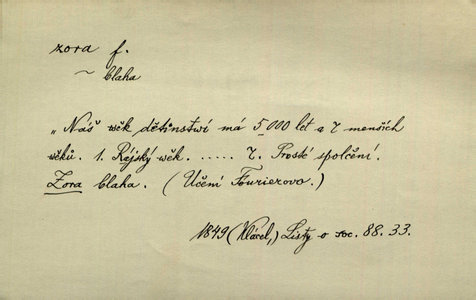 zora f.
~ blaha
„Náš wěk dětinstwí má 5,000 let a 7 menších
wěků. 1. Rájský wěk. ..... 7. Prosté spolčení.
Zora blaha. (Učení Fourierovo.)
1849 (Klácel,) Listy o soc. 88. 33.